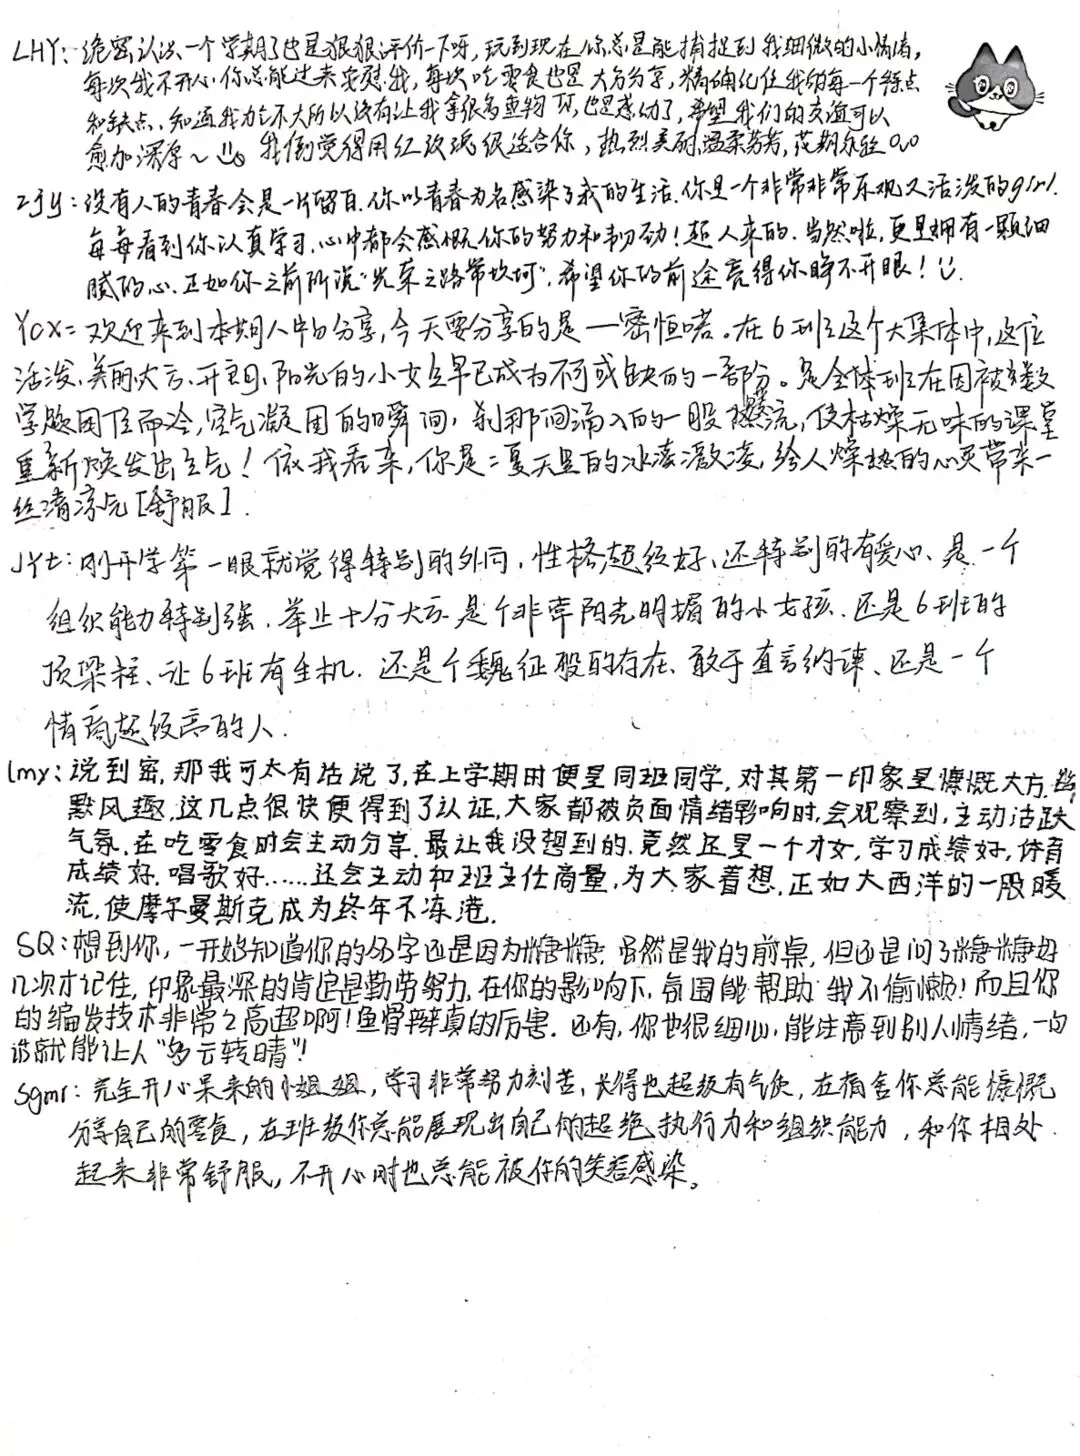 LHY: 绝密认识一个学期了也是狠狠评价一下呀，玩到现在你总是能捕捉到我细微的小情绪，
每次我不开心你总能过来安慰我，每次吃零食也是大方分享，精确记住我的每一个特点
和缺点、知道我力气不大所以没有让我拿很多重物，也是感动了，希望我们的友谊可以
愈加深厚～ 我倒觉得用红玫瑰很适合你，热烈美丽，温柔芬芳，花期永驻0.0
zjy: 没有人的青春会是一片留白.你以青春为名感染了我的生活.你是一个非常非常乐观又活泼的girl.
每每看到你认真学习.心中都会感慨你的努力和韧劲！超人来的.当然啦，更是拥有一颗细
腻的心.正如你之前所说“光荣之路常坎坷”，希望你的前途亮得你睁不开眼！
Ycx= 欢迎来到本期人牛的分享，今天要分享的是一密恒喏。在6班这个大集体中，这位
活泼、美丽大方、开朗、阳光的小女生早已成为不可或缺的一部分。是全体班在因被数
学题困住而冷，空气凝固的瞬间，刹那间涌入的一股燃流，使枯燥无味的课堂
重新焕发出生气！依我看来，你是：夏天里的冰凌激凌，给人燥热的心灵带来一
丝清凉气[舒服].
JYt: 刚开学第一眼就觉得特别的外向，性格超级好、还特别的有爱心、是一个
组织能力特别强．举止十分大方．是个非常阳光明媚的小女孩．还是6班的
顶梁柱、让6班有生机．还是个魏征般的存在、敢于直言纳谏、还是一个
情商超级高的人.
lmy: 说到密，那我可太有话说了，在上学期时便是同班同学，对其第一印象是慷慨大方.幽
默风趣.这几点很快便得到了认证.大家都被负面情绪影响时，会观察到，主动活跃
气氛.在吃零食时会主动分享.最让我没想到的.竟然还是一个才女，学习成绩好，体育
成绩好.唱歌好……还会主动和班主任商量，为大家着想.正如大西洋的一股暖
流，使摩尔曼斯克成为终年不冻港.
SQ: 想到你，一开始知道你的名字还是因为糖糖. 虽然是我的前桌，但还是问了糖糖好
几次才记住，印象最深的肯定是勤劳努力，在你的影响下，氛围能帮助我不偷懒！而且你
的编发技术非常之高超啊！鱼骨辫真的厉害. 还有，你也很细心，能注意到别人情绪，一句
话就能让人“多云转晴”！
Sgmr: 完全开心果来的小姐姐，学习非常努力刻苦，长得也超级有气质，在宿舍你总能慷慨
分享自己的零食，在班级你总能展现出自己的超绝执行力和组织能力，和你相处
起来非常舒服，不开心时也总能被你的笑容感染。